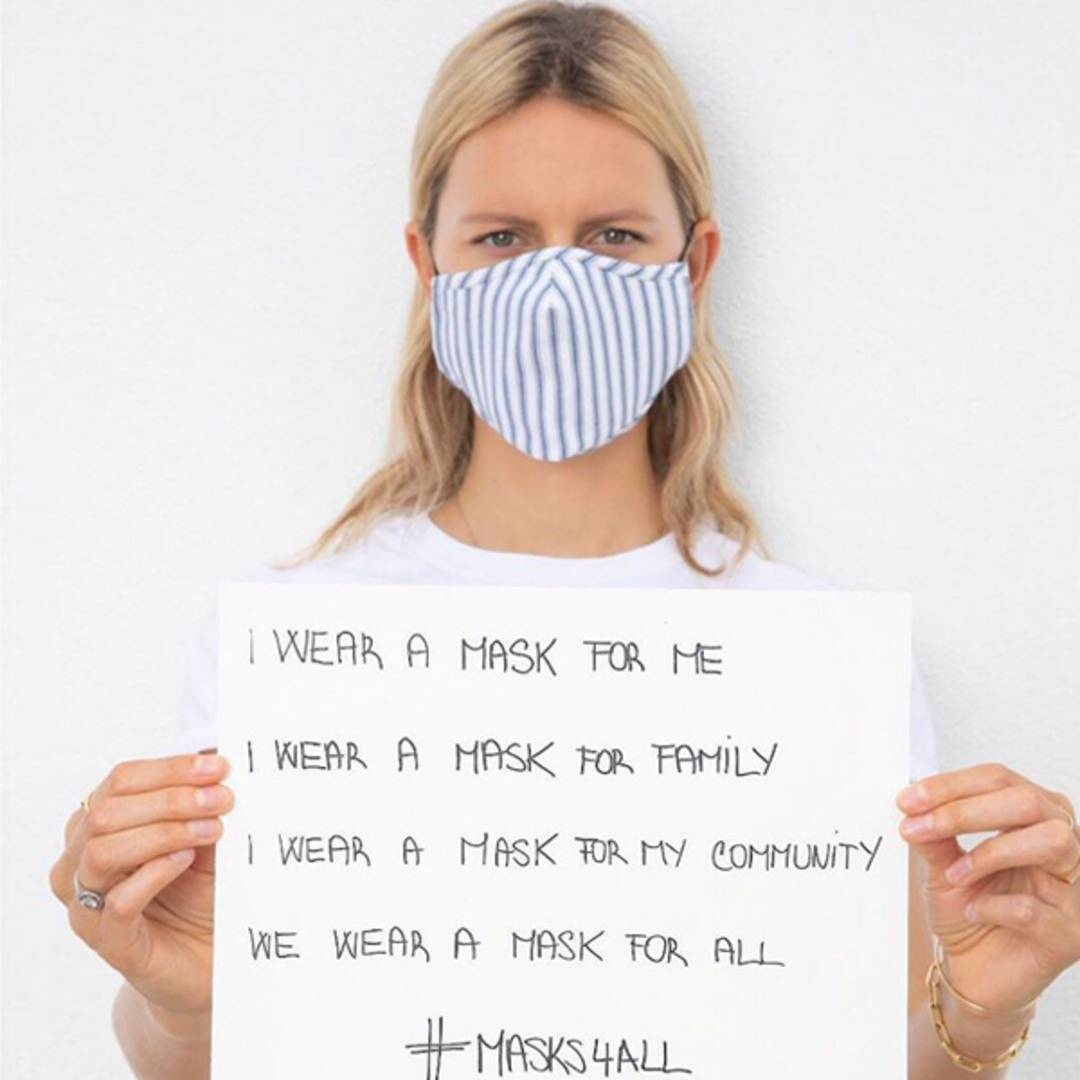 I WEAR A MASK FOR ME
I WEAR A MASK FOR FAMiLY
I WEAR A MASK FOR MY COMMUNiTY
WE WEAR A MASK FOR ALL
#MASKS4ALL